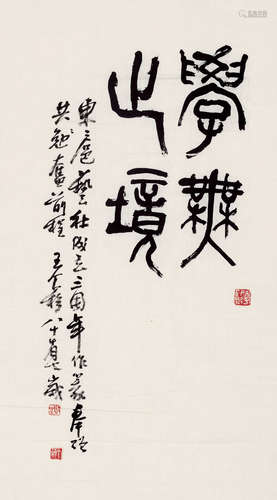 學無
止境
東藝社成立三周年作篆奉贈
共勉奮前程 王个簃八十有七歲